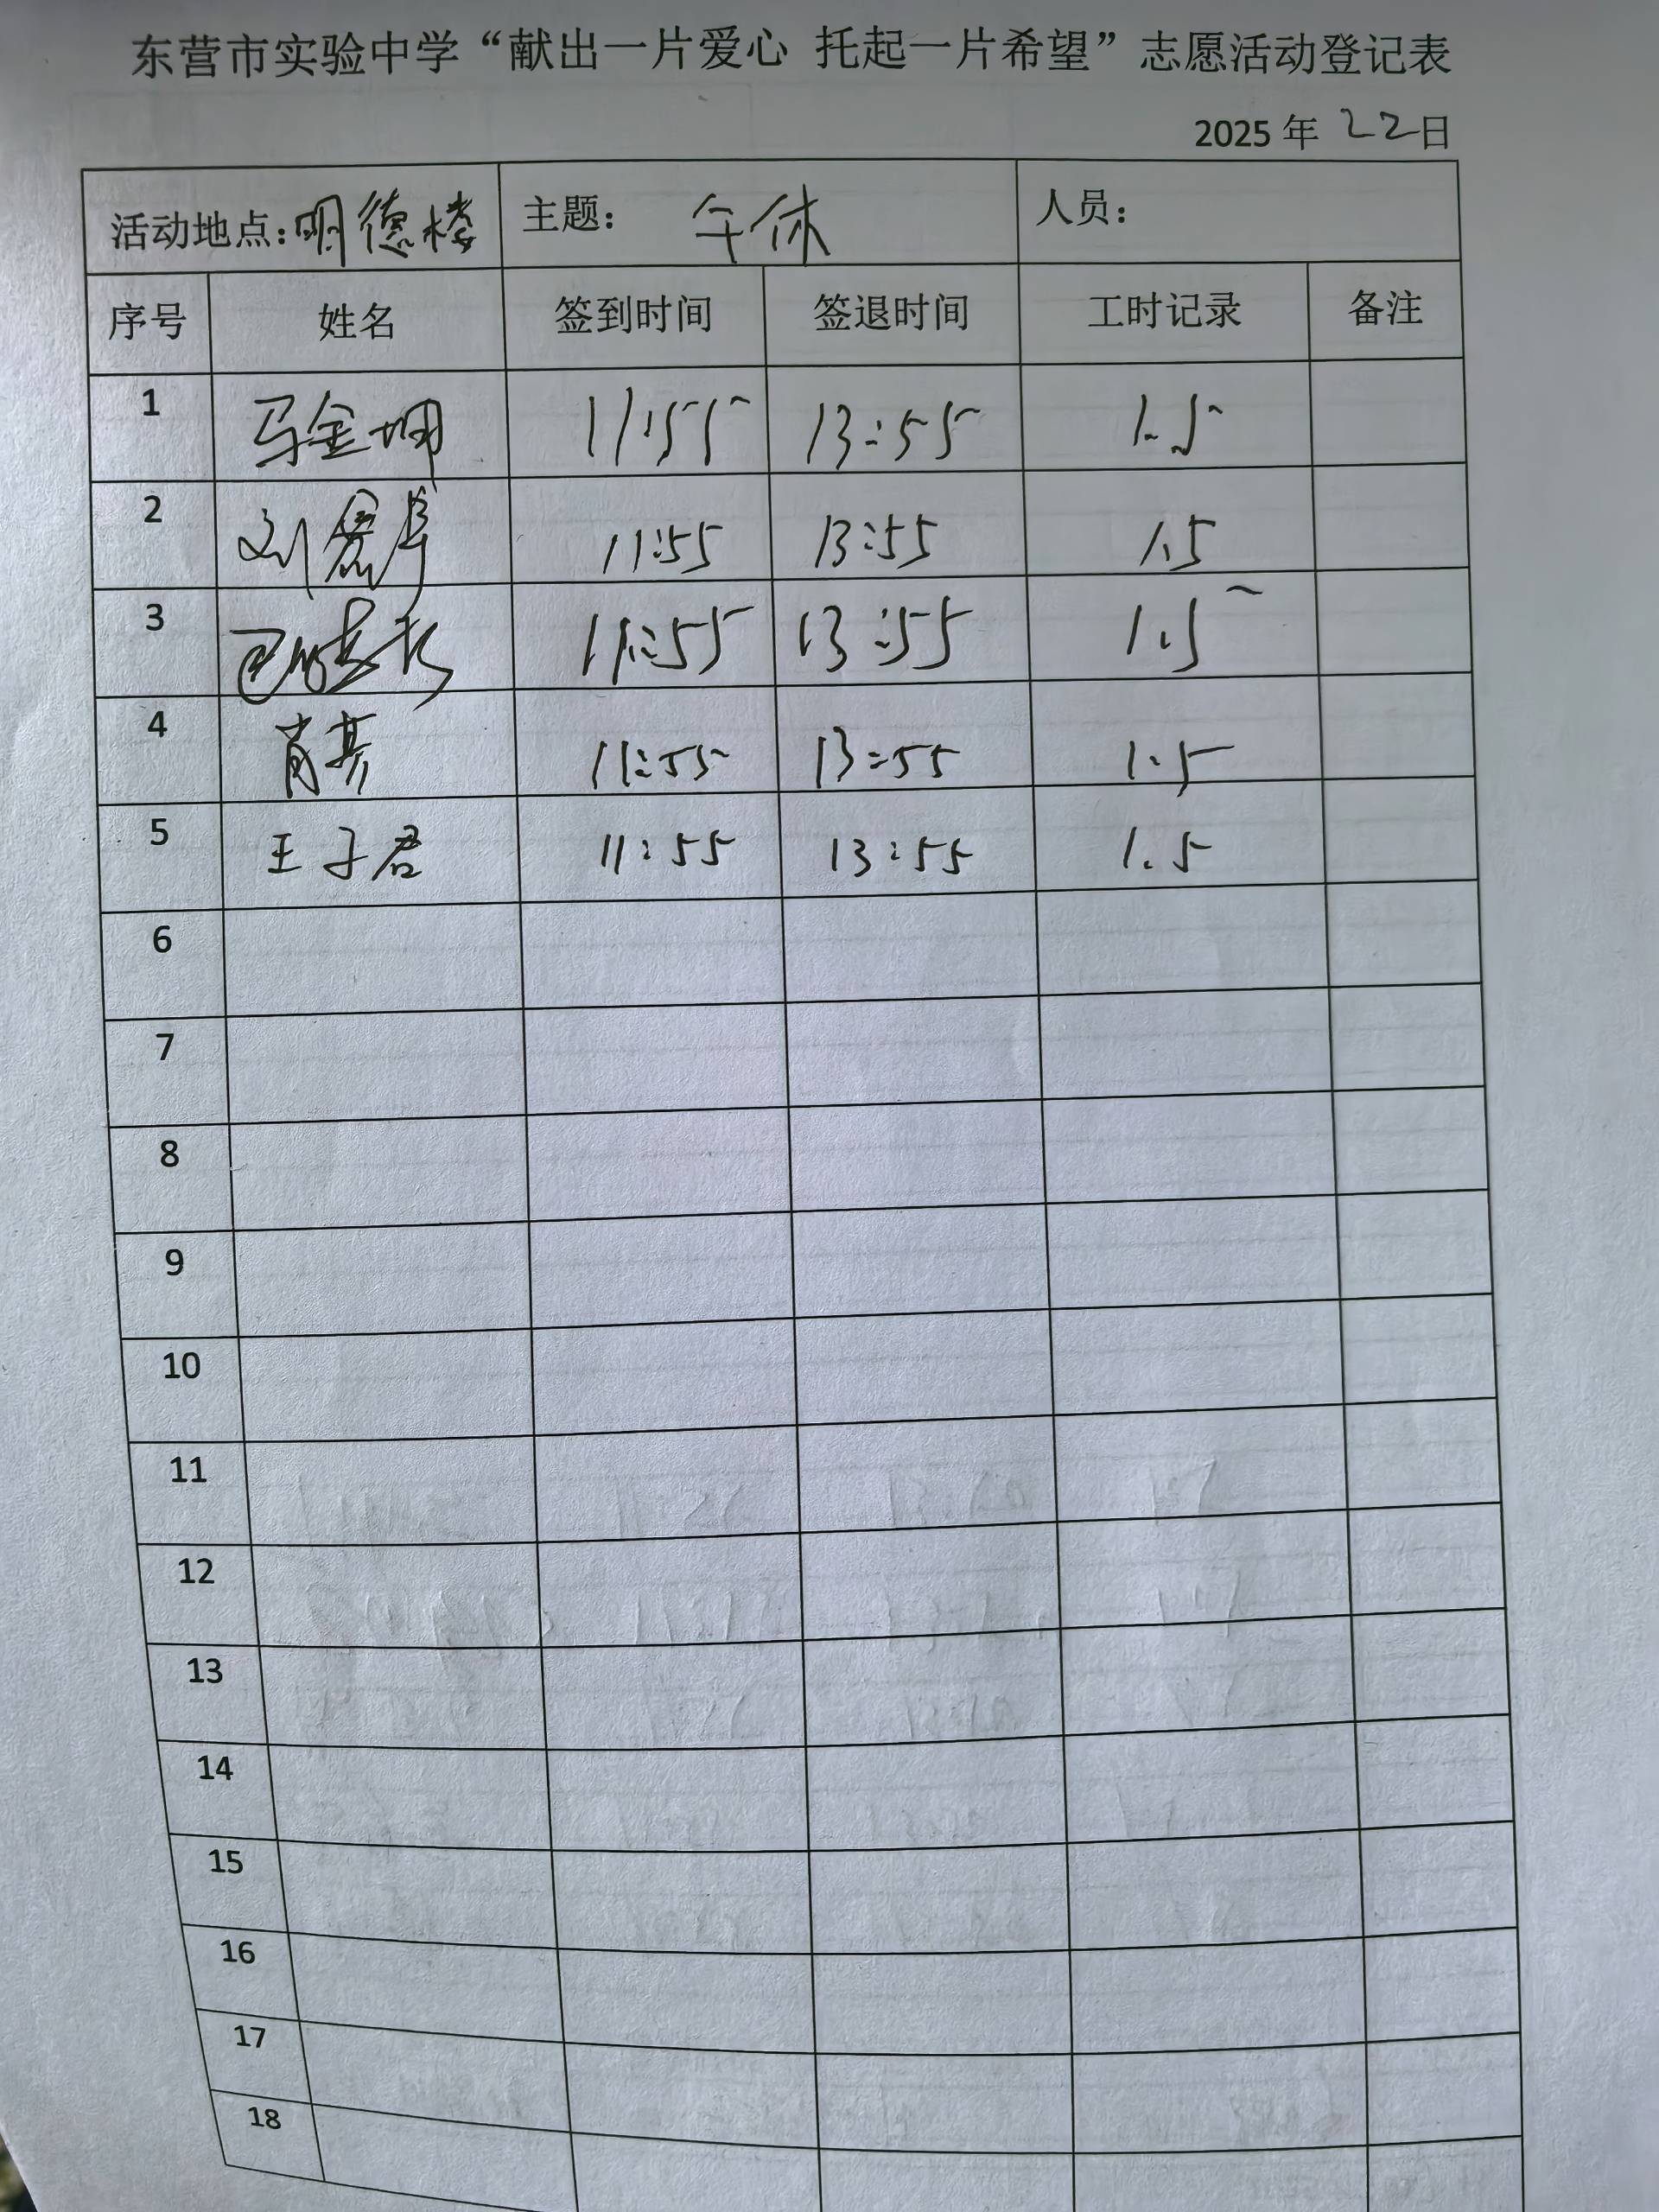 东营市实验中学“献出一片爱心 托起一片希望”志愿活动登记表
2025年 22日
活动地点:明德楼 主题: 午休 人员:
序号 姓名 签到时间 签退时间 工时记录 备注
1 马金 11:55 13:55 1.5
2 刘 11:55 13:55 1.5
3 11:55 13:55 1.5
4 肖 11:55 13:55 1.5
5 王子君 11:55 13:55 1.5
6
7
8
9
10
11
12
13
14
15
16
17
18